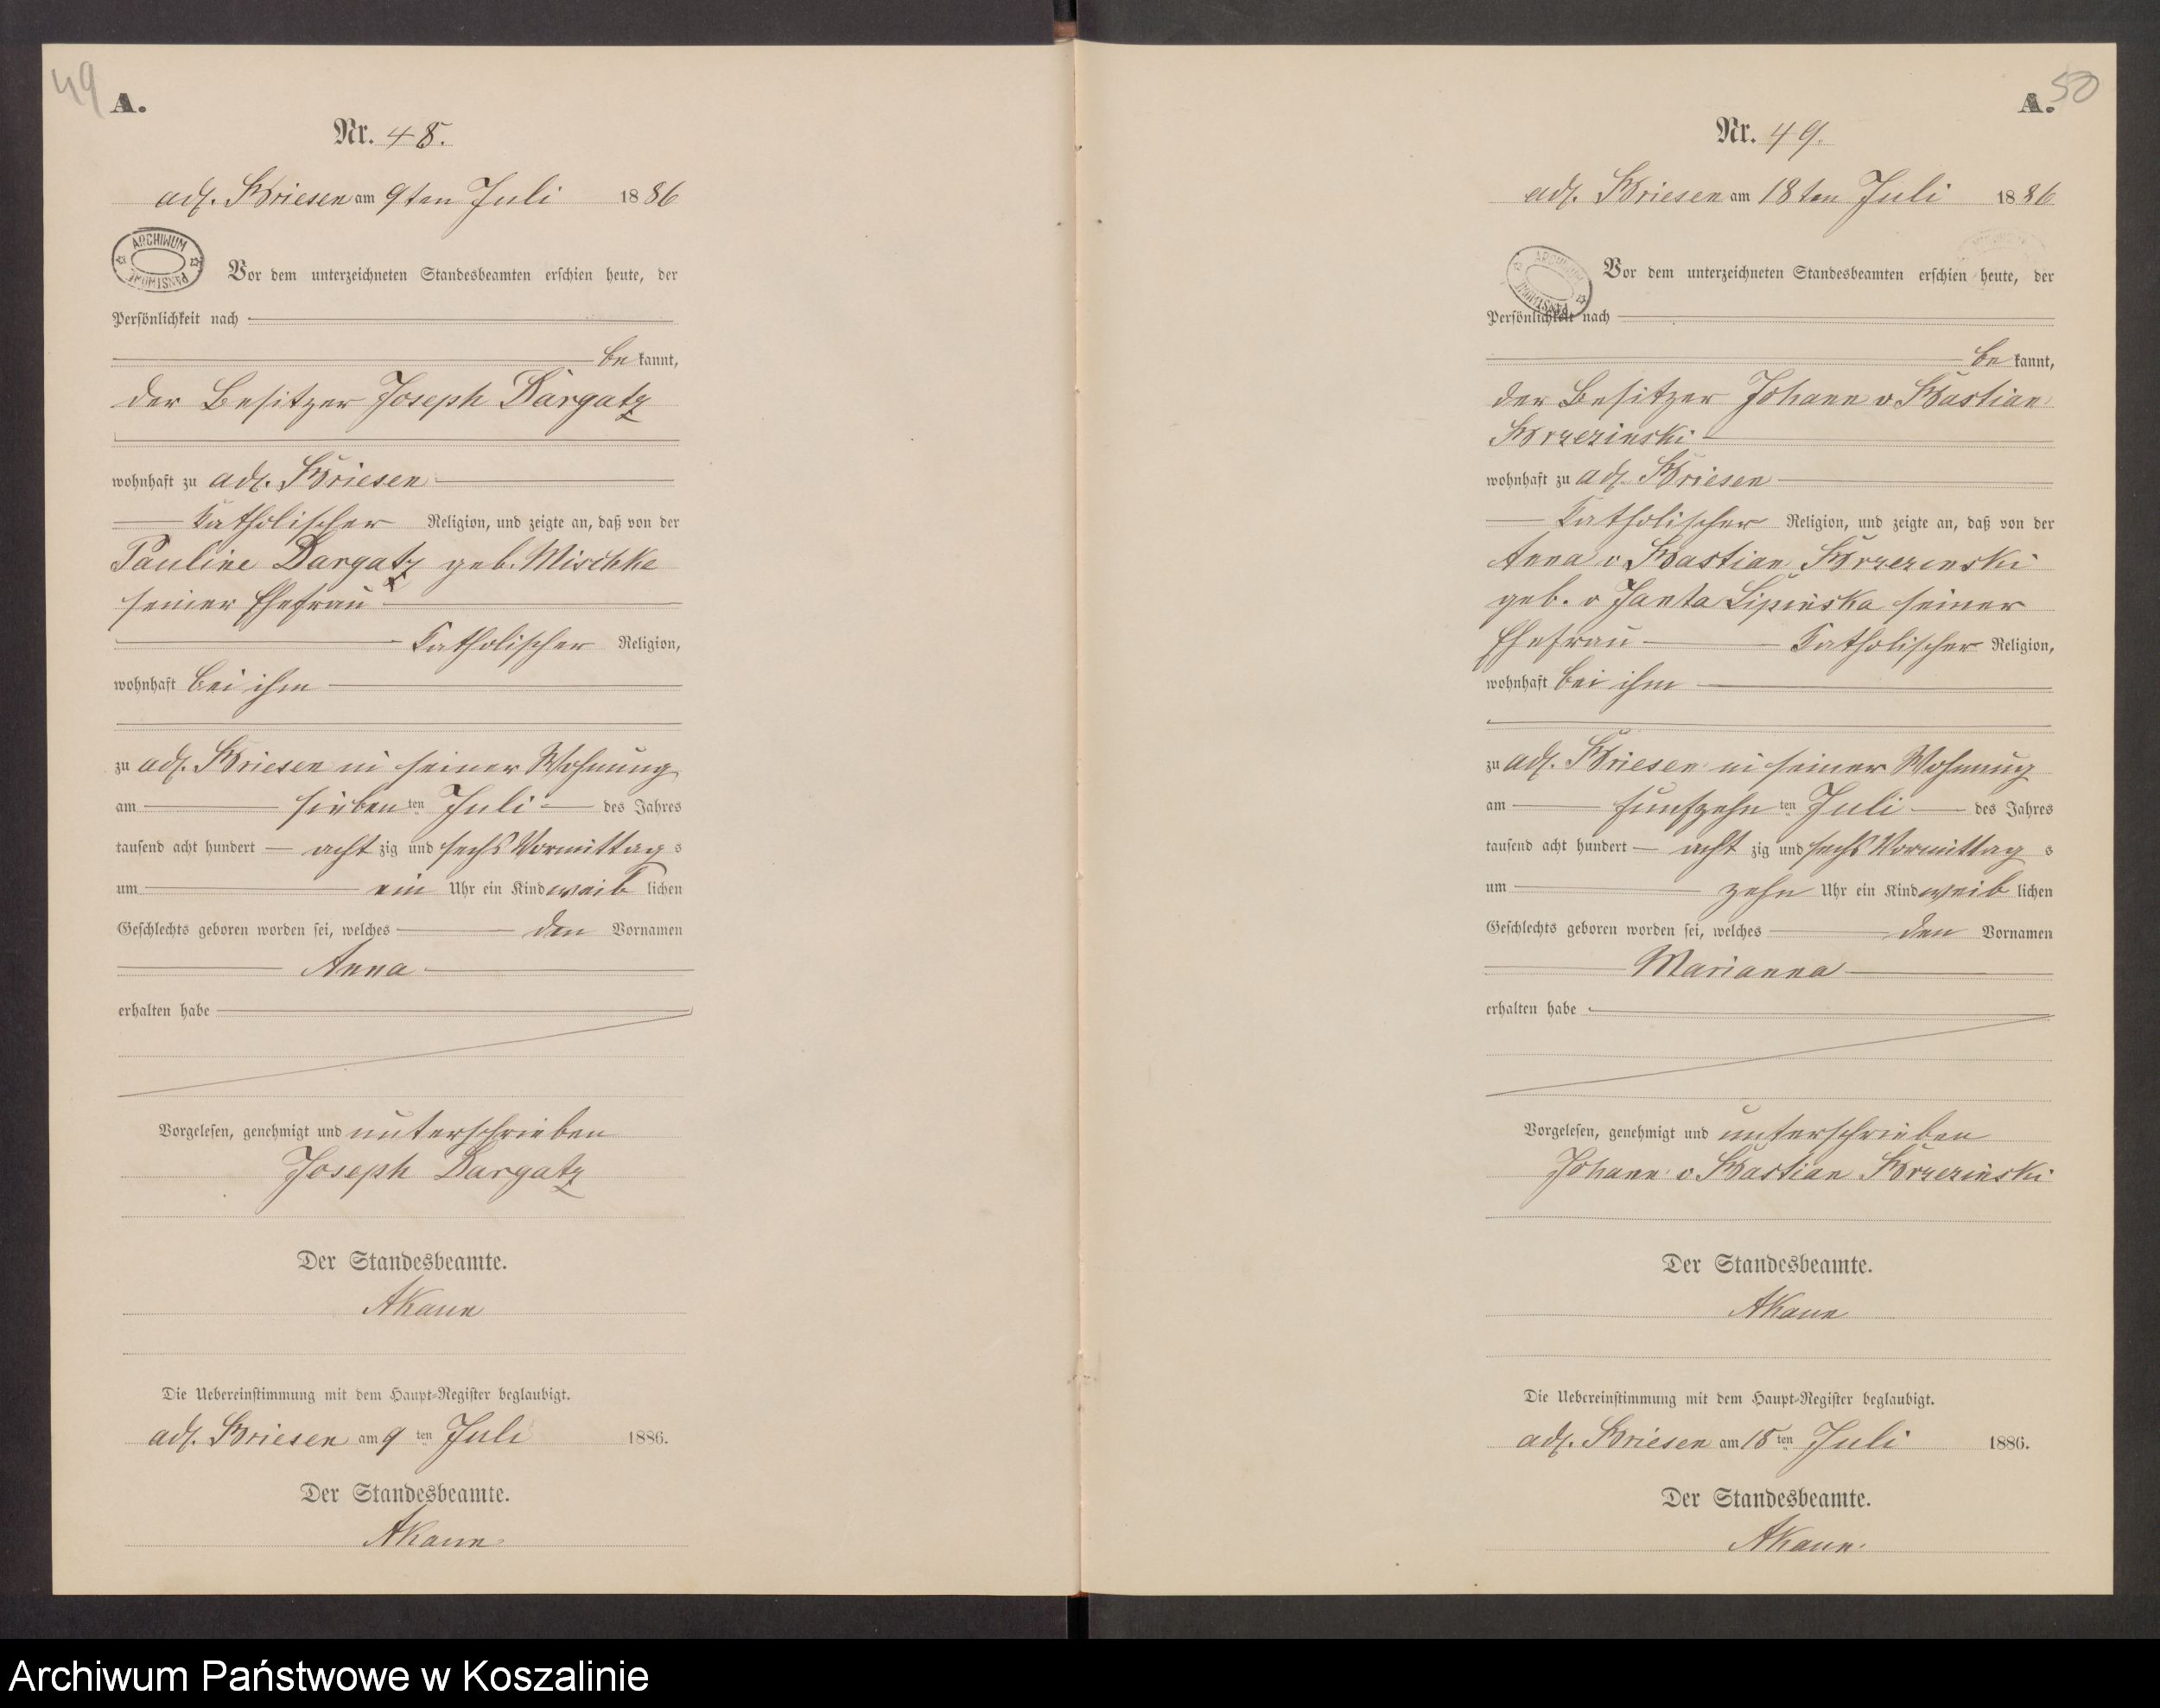 49
A.
Nr. 48.
adl. Briesen am 9ten Juli 1886
ARCHIWUM
PAŃSTWOWE
Vor dem unterzeichneten Standesbeamten erschien heute, der
Persönlichkeit nach
be kannt,
der Besitzer Joseph Dargatz
wohnhaft zu adl. Briesen
katholischer Religion, und zeigte an, daß von der
Pauline Dargatz geb. Mischke
seiner Ehefrau
katholischer Religion,
wohnhaft bei ihm
zu adl. Briesen in seiner Wohnung
am sieben ten Juli des Jahres
tausend acht hundert acht zig und sechs Vormittag s
um ein Uhr ein Kind weib lichen
Geschlechts geboren worden sei, welches den Vornamen
Anna
erhalten habe
Vorgelesen, genehmigt und unterschrieben
Joseph Dargatz
Der Standesbeamte.
AKaun
Die Uebereinstimmung mit dem Haupt-Register beglaubigt.
adl. Briesen am 9 ten Juli 1886.
Der Standesbeamte.
AKaun
A. 50
Nr. 49.
adl. Briesen am 18ten Juli 1886
ARCHIWUM
PAŃSTWOWE
Vor dem unterzeichneten Standesbeamten erschien heute, der
Persönlichkeit nach
be kannt,
der Besitzer Johann v Bastian
Brzezinski
wohnhaft zu adl. Briesen
katholischer Religion, und zeigte an, daß von der
Anna v Bastian Brzezinski
geb. v Janta Lipinska seiner
Ehefrau katholischer Religion,
wohnhaft bei ihm
zu adl. Briesen in seiner Wohnung
am funfzehn ten Juli des Jahres
tausend acht hundert acht zig und sechs Vormittag s
um zehn Uhr ein Kind weib lichen
Geschlechts geboren worden sei, welches den Vornamen
Marianna
erhalten habe
Vorgelesen, genehmigt und unterschrieben
Johann v Bastian Brzezinski
Der Standesbeamte.
AKaun
Die Uebereinstimmung mit dem Haupt-Register beglaubigt.
adl. Briesen am 18 ten Juli 1886.
Der Standesbeamte.
AKaun.
Archiwum Państwowe w Koszalinie